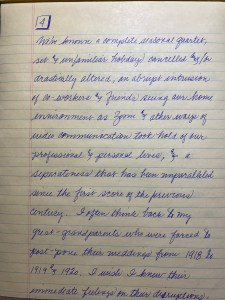 4
We've known a complete seasonal quarter,
set & unfamiliar holidays cancelled &/or
drastically altered, an abrupt intrusion
of co-workers & friends seeing our home
environment as Zoom & other ways of
video communication took hold of our
professional & personal lives, & a
seperateness that has been unparalleled
since the first score of the previous
century. I often think back to my
great-grandparents who were forced to
post-pone their weddings from 1918 to
1919 & 1920. I wish I knew their
immediate feelings on their disruptions.